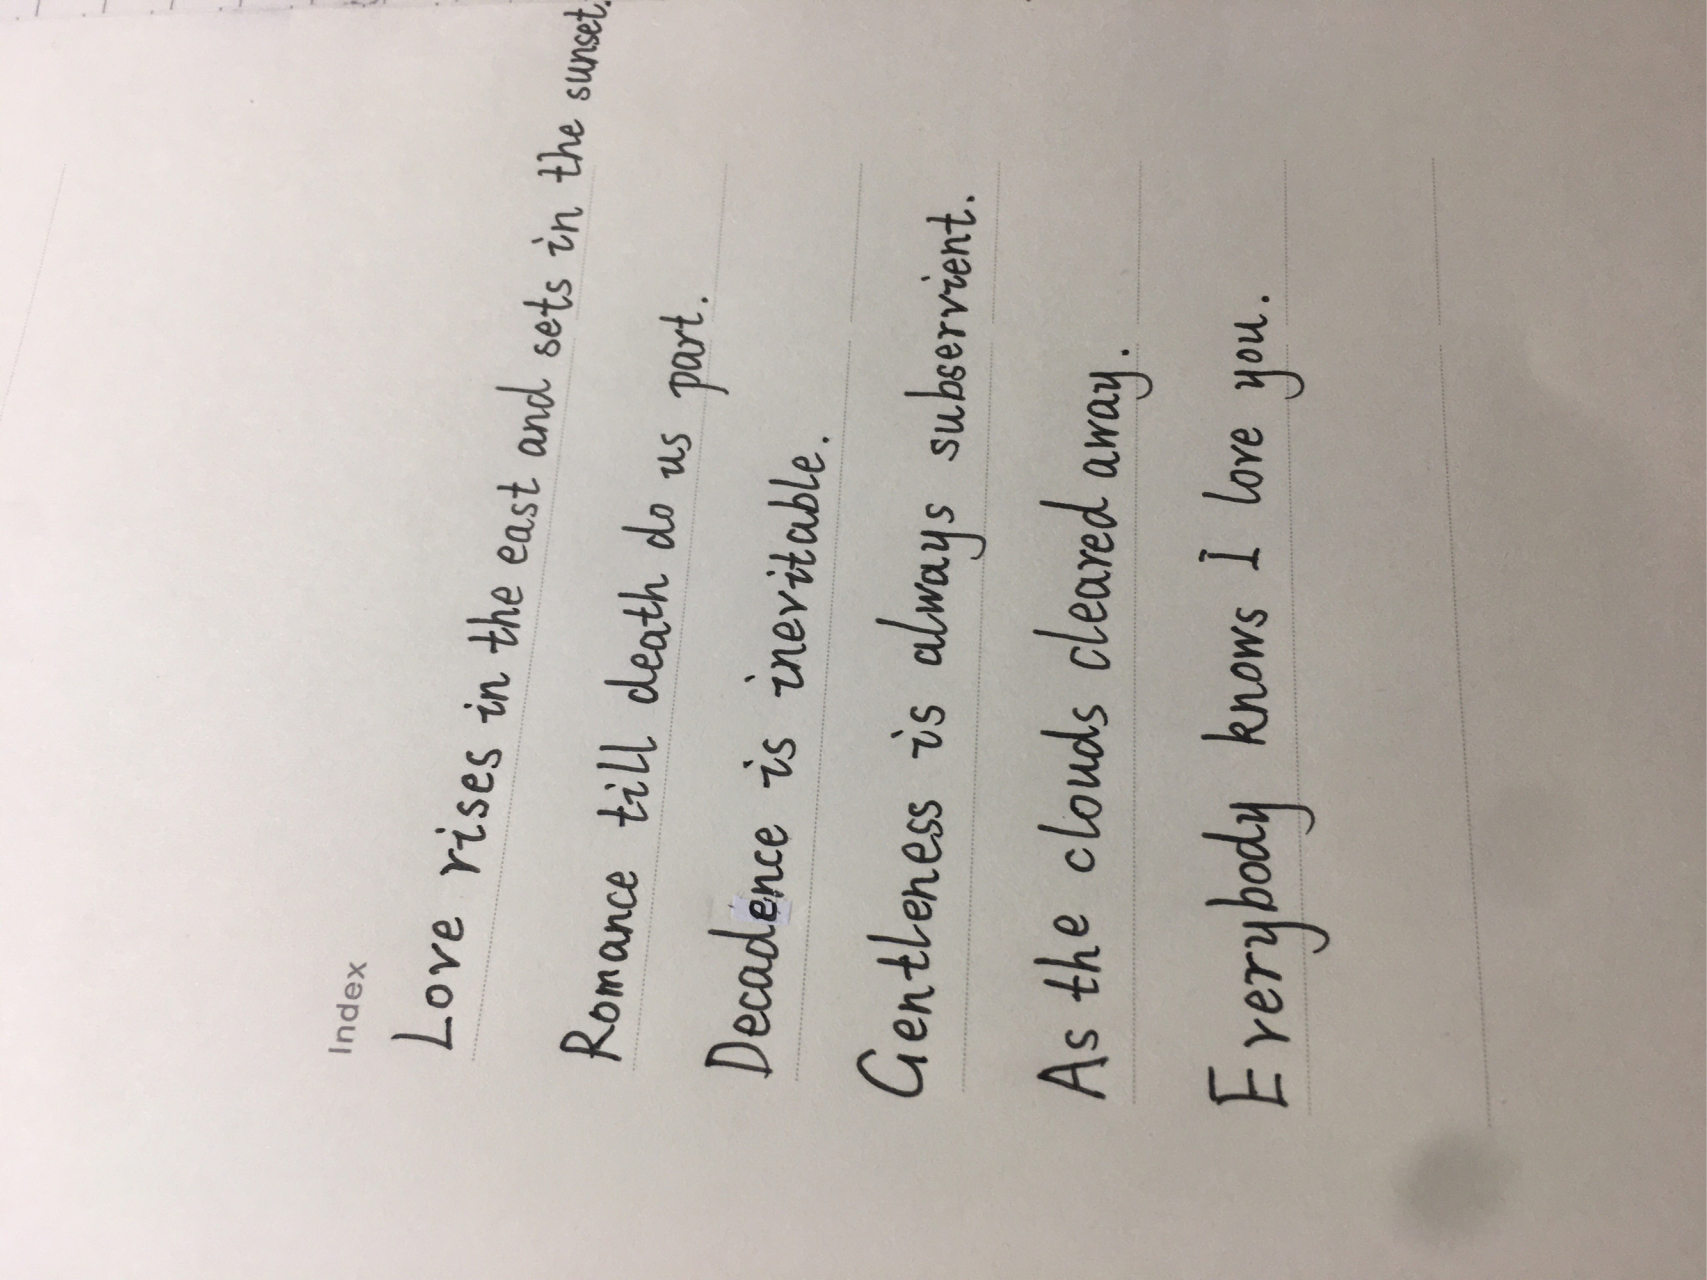 Index
Love rises in the east and sets in the sunset.
Romance till death do us part.
Decadence is inevitable.
Gentleness is always subservient.
As the clouds cleared away.
Everybody knows I love you.